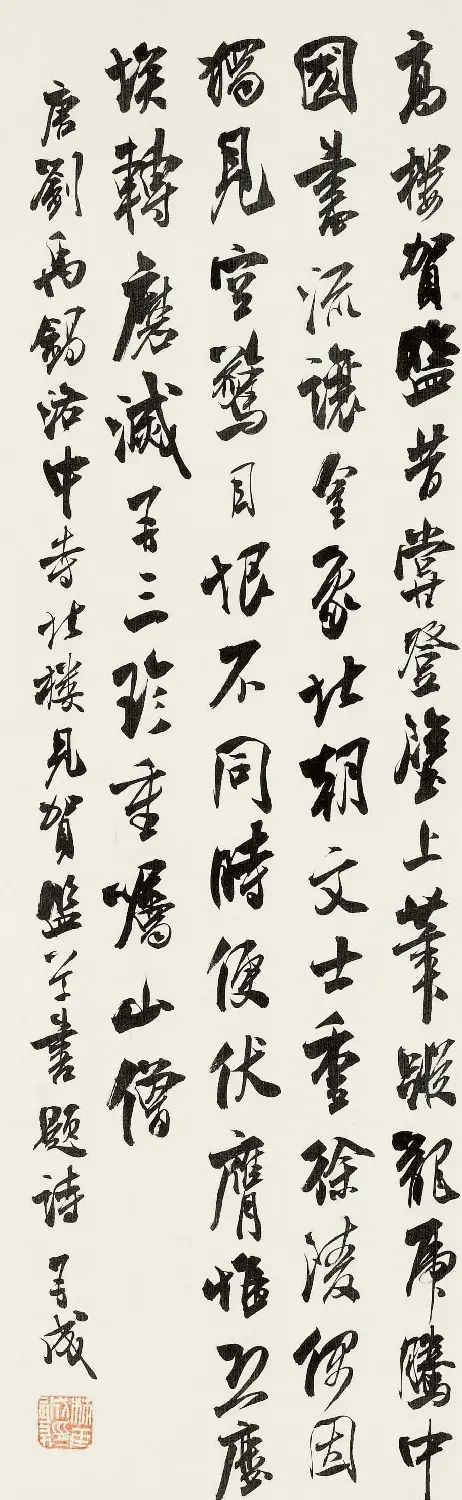 高樓賀監昔嘗登壁上筆蹤龍虎騰中
國書流讓皇象北朝文士重徐陵偶因
獨見空驚目恨不同時便伏膺惟恐塵
埃轉磨滅再三珍重囑山僧
唐劉禹錫洛中寺北樓見賀監草書題詩 成